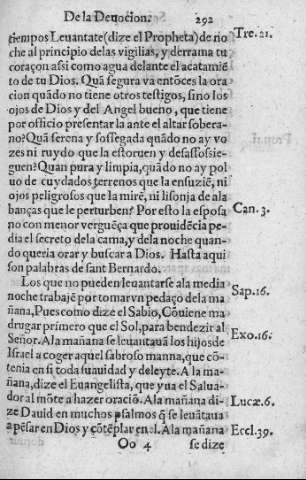 De la Deuocion. 292
tiempos Leuantate (dize el Propheta) de no Tre. 21.
che al principio delas vigilias, y derrama tu
coraçon assi como agua delante el acatamiẽ
to de tu Dios. Quã segura va entõces la ora
cion quãdo no tiene otros testigos, sino los
ojos de Dios y del Angel bueno, que tiene
por officio presentar la ante el altar sobera-
no? Quã serena y sossegada quãdo no ay vo
zes ni ruydo que la estoruen y desassosie-
guen? Quan pura y limpia, quãdo no ay pol
uo de cuydados terrenos que la ensuziẽ, ni
ojos peligrosos que la mirẽ, ni lisonja de ala
banças que le perturben? Por esto la esposa
no con menor verguẽça que prouidẽcia pe Can. 3.
dia el secreto dela cama, y dela noche quan-
do queria orar y buscar a Dios. Hasta aqui
son palabras de sant Bernardo.
Los que no pueden leuantarse ala media
noche trabajẽ por tomar vn pedaço dela ma Sap. 16.
ñana, Pues como dize el Sabio, Cõuiene ma
drugar primero que el Sol, para bendezir al
Señor. Ala mañana se leuantauã los hijos de Exo. 16.
Israel a coger aquel sabroso manna, que cõ-
tenia en si toda suauidad y deleyte. A la ma-
ñana, dize el Euangelista, que yua el Salua-
dor al mõte a hazer oraciõ. Ala mañana di- Lucæ. 6.
ze Dauid en muchos psalmos q̃ se leuãtaua
a pẽsar en Dios y cõtẽplar en el. Ala mañana Eccl. 39.
Oo 4 se dize